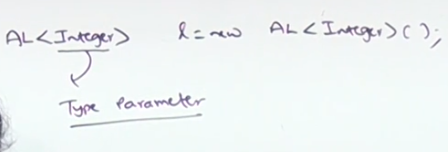 AL<Integer> l = new AL<Integer>();
Type Parameter